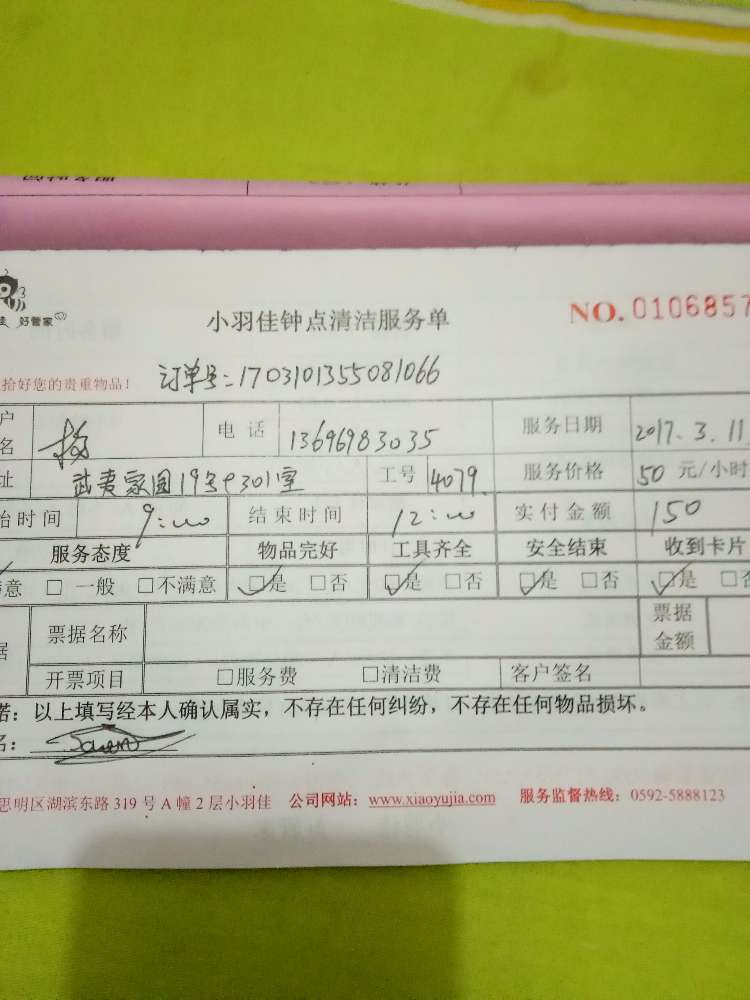 好管家
小羽佳钟点清洁服务单
NO. 0106857
拾好您的贵重物品！ 订单号：1703101355081066
户名 杨 电 话 13696983035 服务日期 2017.3.11
址 武夷家园19号301室 工号 4079 服务价格 50 元/小时
始时间 9:00 结束时间 12:00 实付金额 150
服务态度 物品完好 工具齐全 安全结束 收到卡片
意 □ 一般 □不满意 ☑是 □否 ☑是 □否 ☑是 □否 ☑是 □否
据 票据名称 票据金额
开票项目 □服务费 □清洁费 客户签名
诺：以上填写经本人确认属实，不存在任何纠纷，不存在任何物品损坏。
名：
思明区湖滨东路 319 号 A 幢 2 层小羽佳 公司网站：www.xiaoyujia.com 服务监督热线：0592-5888123